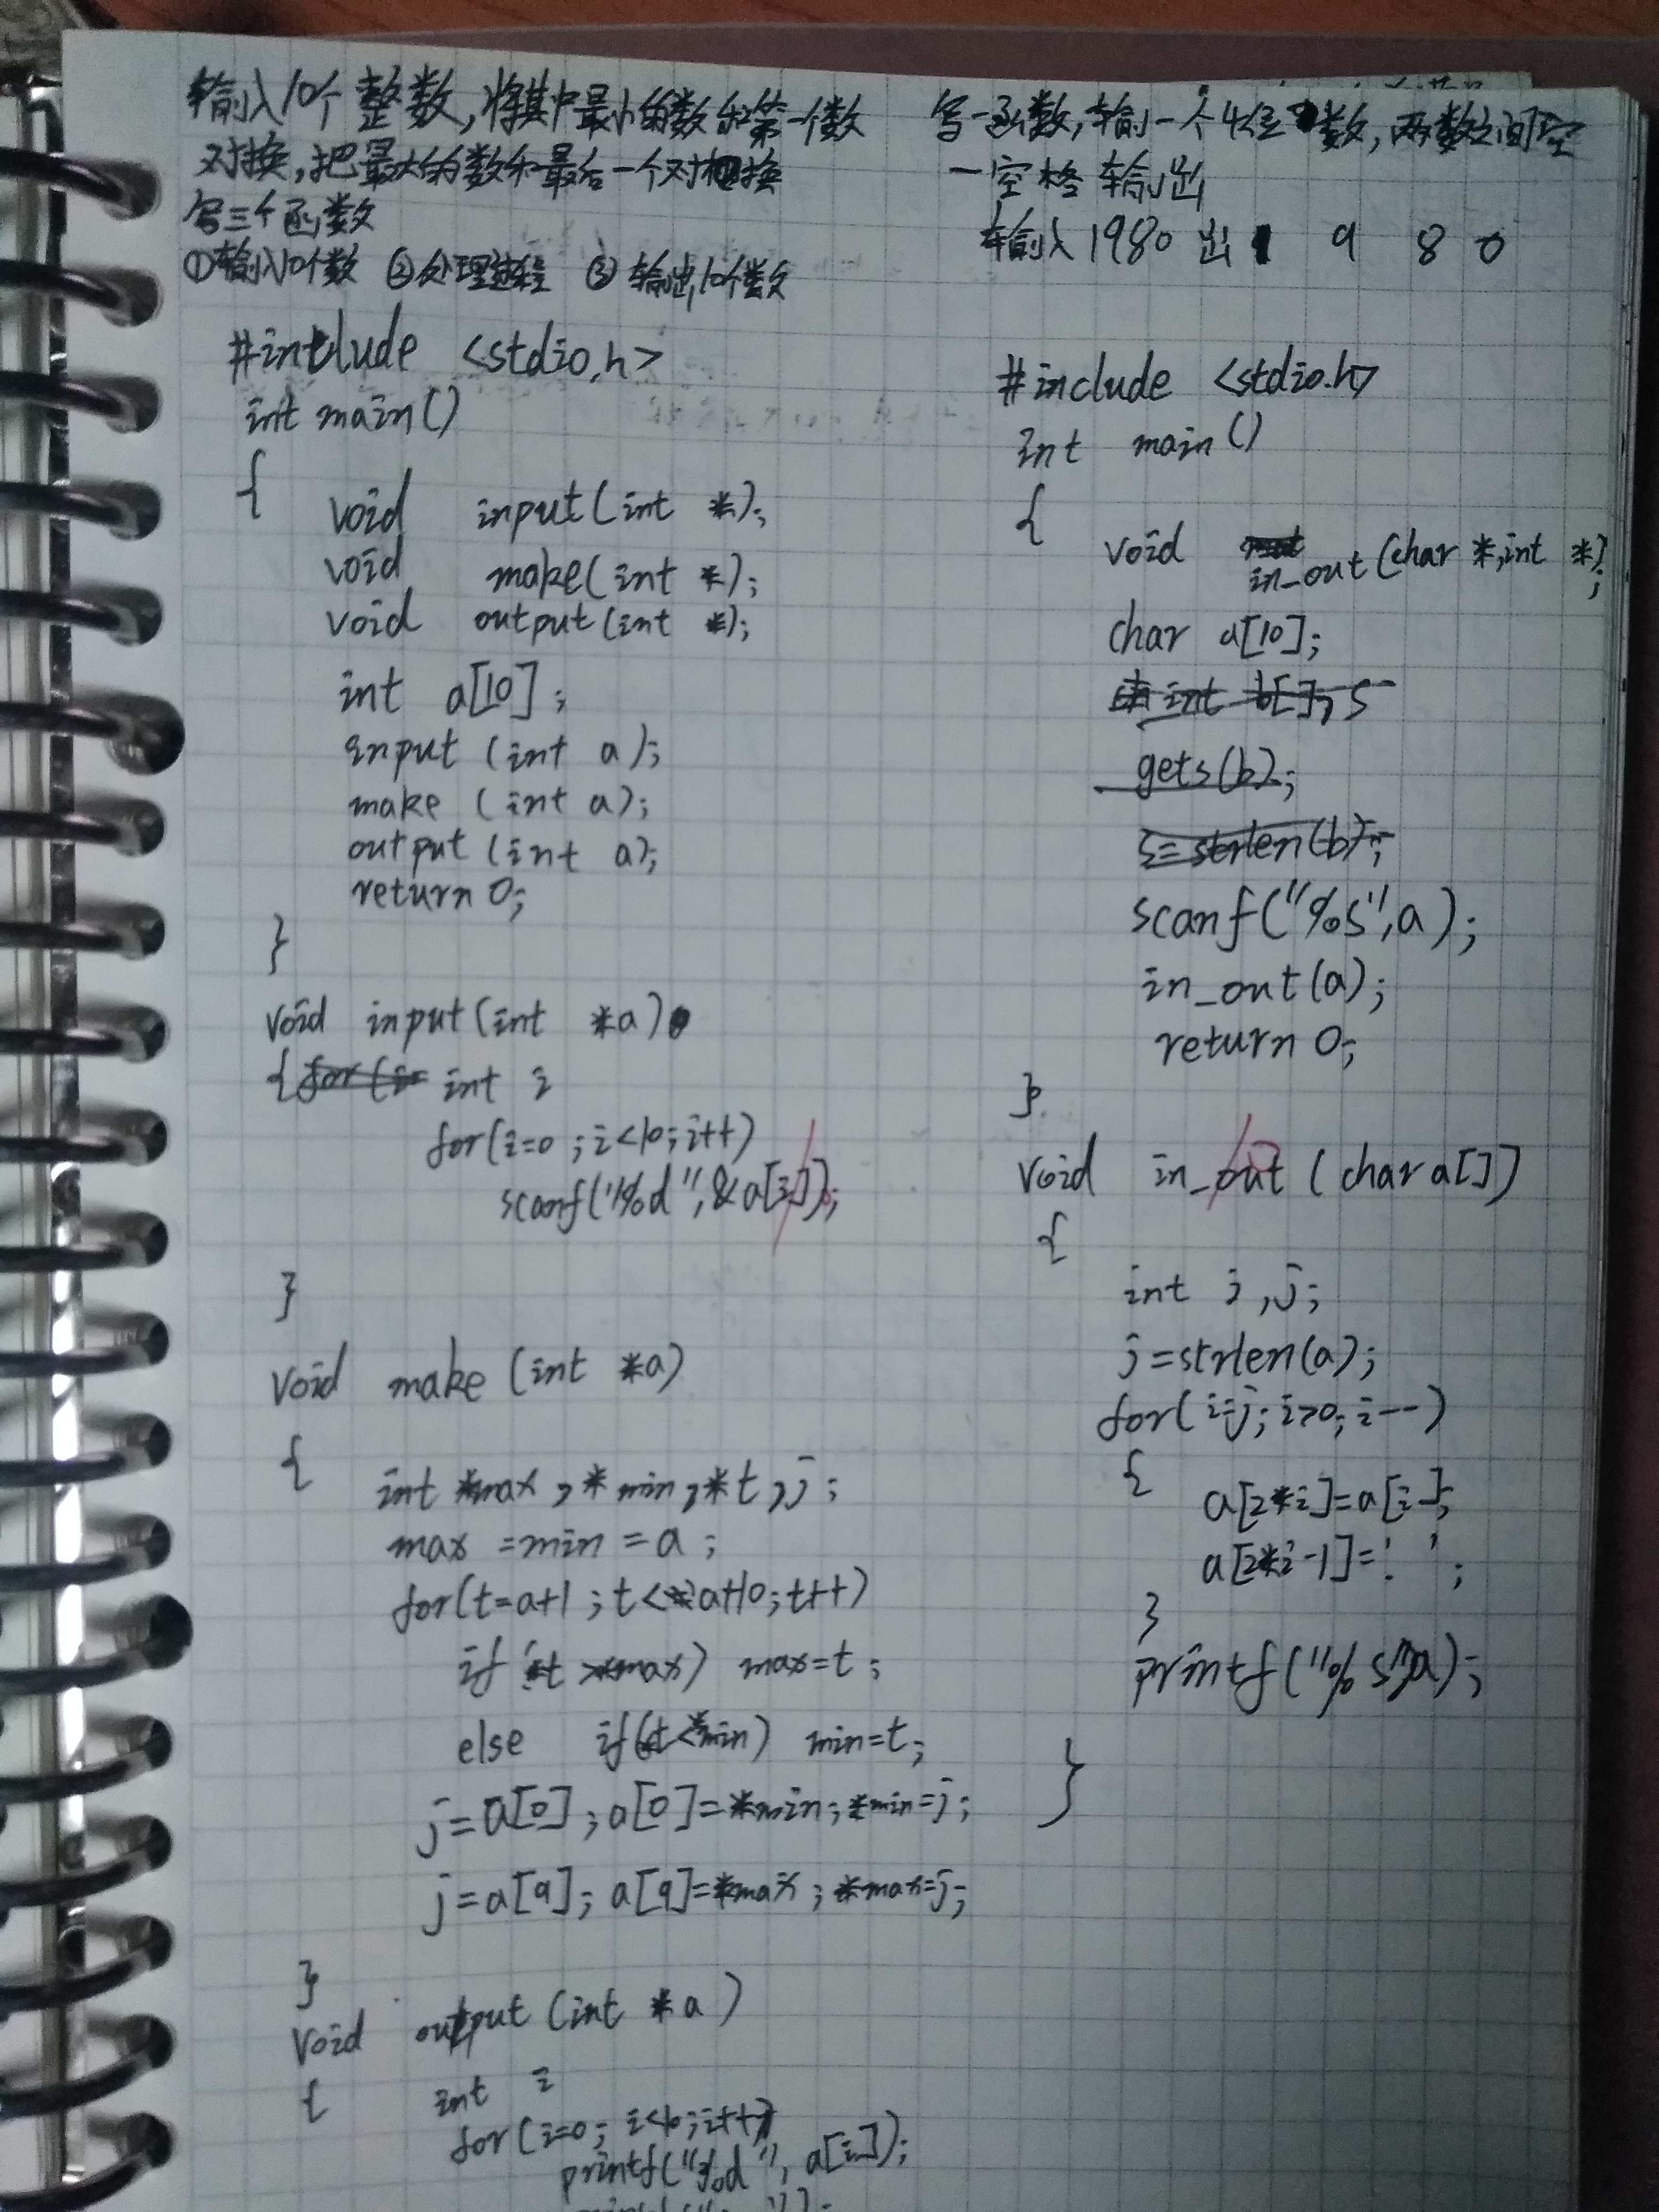 输入10个整数,将其中最小的数和第一个数
对换,把最大的数和最后一个对换
写三个函数
①输入10个数 ②处理过程 ③输出10个数
#include <stdio.h>
int main()
{ void input(int *);
void make(int *);
void output(int *);
int a[10];
input (int a);
make (int a);
output (int a);
return 0;
}
void input(int *a)
{ int i
for(i=0;i<10;i++)
scanf("%d",&a[i]);
}
void make (int *a)
{ int *max,*min,*t,j;
max=min=a;
for(t=a+1;t<a+10;t++)
if(*t>*max) max=t;
else if(*t<*min) min=t;
j=a[0];a[0]=*min;*min=j;
j=a[9];a[9]=*max;*max=j;
}
void output(int *a)
{ int i
for(i=0;i<10;i++)
printf("%d",a[i]);
写一函数,输一个4位数,两数之间空
一空格输出
输入1980 出 1 9 8 0
#include <stdio.h>
int main()
{ void in_out(char *,int *);
char a[10];
int b[],s
gets(b);
s=strlen(b);
scanf("%s",a);
in_out(a);
return 0;
}
void in_out (char a[])
{
int i,j;
j=strlen(a);
for(i=j;i>0;i--)
{ a[2*i]=a[i];
a[2*i-1]=' ';
}
printf("%s",a);
}